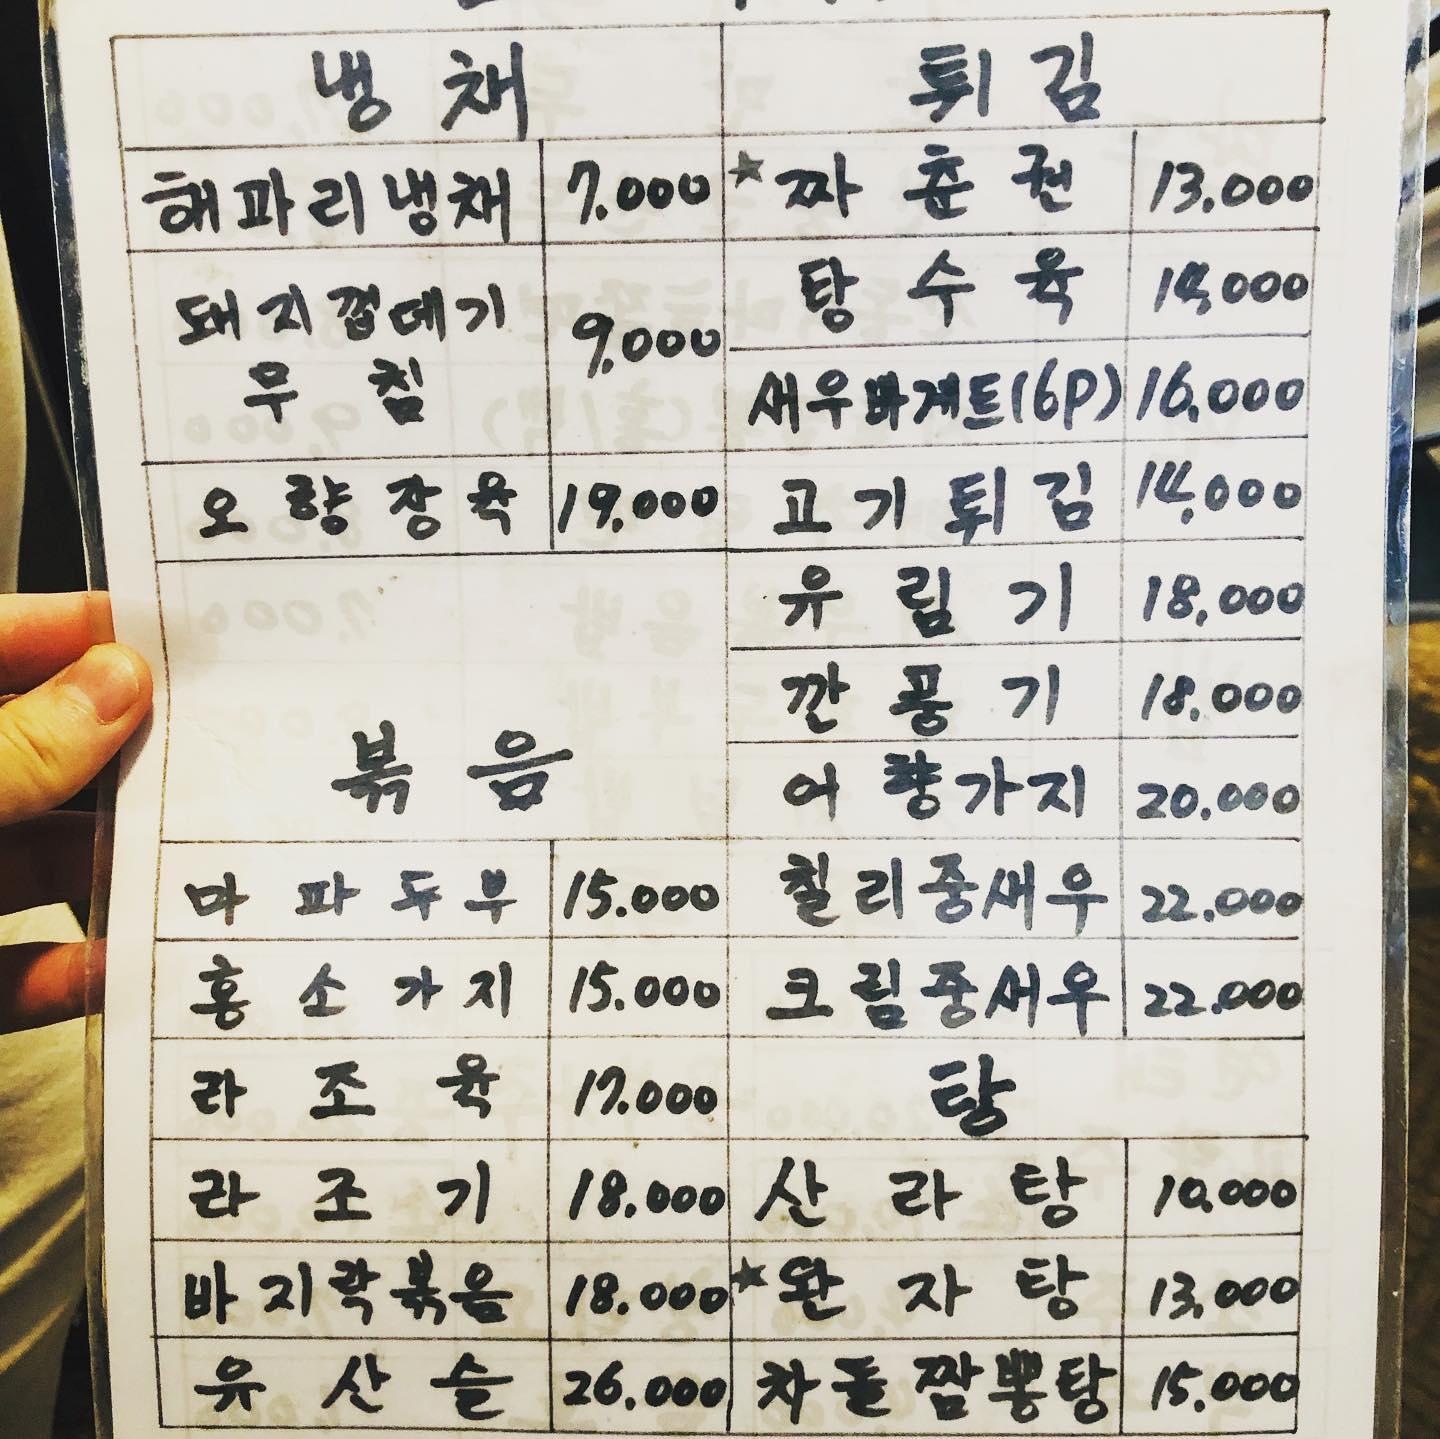 냉채
해파리냉채 7.000
돼지껍데기
무침 9.000
오향장육 19.000
볶음
마파두부 15.000
홍소가지 15.000
라조육 17.000
라조기 18.000
바지락볶음 18.000
유산슬 26.000
튀김
★짜춘권 13.000
탕수육 14,000
새우바게트(6P) 16.000
고기튀김 14,000
유림기 18,000
깐풍기 18.000
어향가지 20.000
칠리중새우 22.000
크림중새우 22.000
탕
산라탕 10.000
★완자탕 13,000
차돌짬뽕탕 15.000